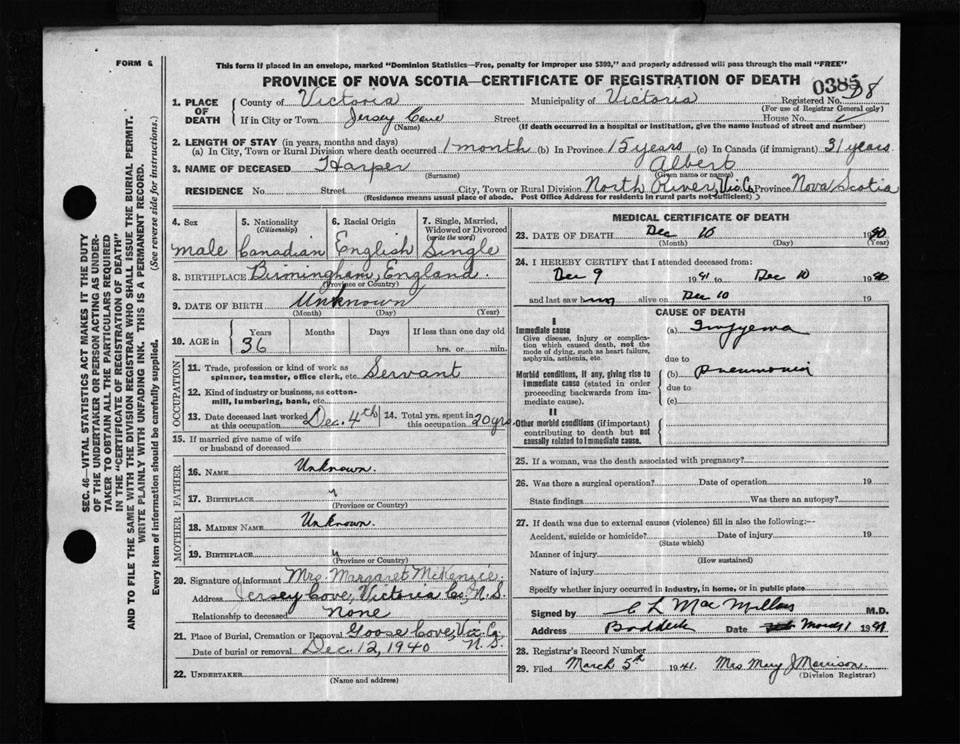 FORM 6
This form if placed in an envelope, marked "Dominion Statistics—Free, penalty for improper use $300," and properly addressed will pass through the mail "FREE"
PROVINCE OF NOVA SCOTIA—CERTIFICATE OF REGISTRATION OF DEATH
0385
1. PLACE OF DEATH County of Victoria Municipality of Victoria Registered No.
(For use of Registrar General only)
If in City or Town Jersey Cove Street House No.
(Name) (If death occurred in a hospital or institution, give the name instead of street and number)
2. LENGTH OF STAY (in years, months and days)
(a) In City, Town or Rural Division where death occurred 1 month (b) In Province 15 years (c) In Canada (if immigrant) 31 years
3. NAME OF DECEASED Harper Albert
(Surname) (Given name or names)
RESIDENCE No. Street City, Town or Rural Division North River, Vic. Co. Province Nova Scotia
(Residence means usual place of abode. Post Office Address for residents in rural parts not sufficient)
SEC. 46—VITAL STATISTICS ACT MAKES IT THE DUTY
OF THE UNDERTAKER OR PERSON ACTING AS UNDER-
TAKER TO OBTAIN ALL THE PARTICULARS REQUIRED
IN THE "CERTIFICATE OF REGISTRATION OF DEATH"
AND TO FILE THE SAME WITH THE DIVISION REGISTRAR WHO SHALL ISSUE THE BURIAL PERMIT.
WRITE PLAINLY WITH UNFADING INK. THIS IS A PERMANENT RECORD.
Every item of information should be carefully supplied. (See reverse side for instructions.)
4. Sex 5. Nationality (Citizenship) 6. Racial Origin 7. Single, Married, Widowed or Divorced (write the word)
male Canadian English Single
8. BIRTHPLACE Birmingham, England.
(Province or Country)
9. DATE OF BIRTH Unknown
(Month) (Day) (Year)
10. AGE in Years Months Days If less than one day old
36 hrs. or min.
OCCUPATION
11. Trade, profession or kind of work as
spinner, teamster, office clerk, etc. Servant
12. Kind of industry or business, as cotton-
mill, lumbering, bank, etc.
13. Date deceased last worked at this occupation Dec. 4th 14. Total yrs. spent in this occupation 20 yrs.
15. If married give name of wife
or husband of deceased
FATHER
16. NAME Unknown.
17. BIRTHPLACE "
MOTHER
18. MAIDEN NAME Unknown.
19. BIRTHPLACE "
(Province or Country)
20. Signature of informant Mrs. Margaret McKenzie.
Address Jersey Cove, Victoria Co., N.S.
Relationship to deceased None
21. Place of Burial, Cremation or Removal Goose Cove, Vic. Co. N.S.
Date of burial or removal Dec. 12, 1940
22. UNDERTAKER
(Name and address)
MEDICAL CERTIFICATE OF DEATH
23. DATE OF DEATH Dec 10 1940
(Month) (Day) (Year)
24. I HEREBY CERTIFY that I attended deceased from:
Dec 9 1941 to Dec 10 1940
and last saw him alive on Dec 10 19
CAUSE OF DEATH
I
Immediate cause (a) Empyema
Give disease, injury or complica-
tion which caused death, not the
mode of dying, such as heart failure,
asphyxia, asthenia, etc.
due to
Morbid conditions, if any, giving rise to
immediate cause (stated in order
proceeding backwards from im-
mediate cause).
(b) Pneumonia
due to
(c)
II
Other morbid conditions (if important)
contributing to death but not
causally related to immediate cause.
25. If a woman, was the death associated with pregnancy?
26. Was there a surgical operation? Date of operation 19
State findings Was there an autopsy?
27. If death was due to external causes (violence) fill in also the following:—
Accident, suicide or homicide? Date of injury 19
(State which)
Manner of injury
(How sustained)
Nature of injury
Specify whether injury occurred in industry, in home, or in public place
Signed by C L MacMillan M.D.
Address Baddeck Date March 1 1941
28. Registrar's Record Number
29. Filed March 5th 1941. Mrs Mary J Morrison
(Division Registrar)